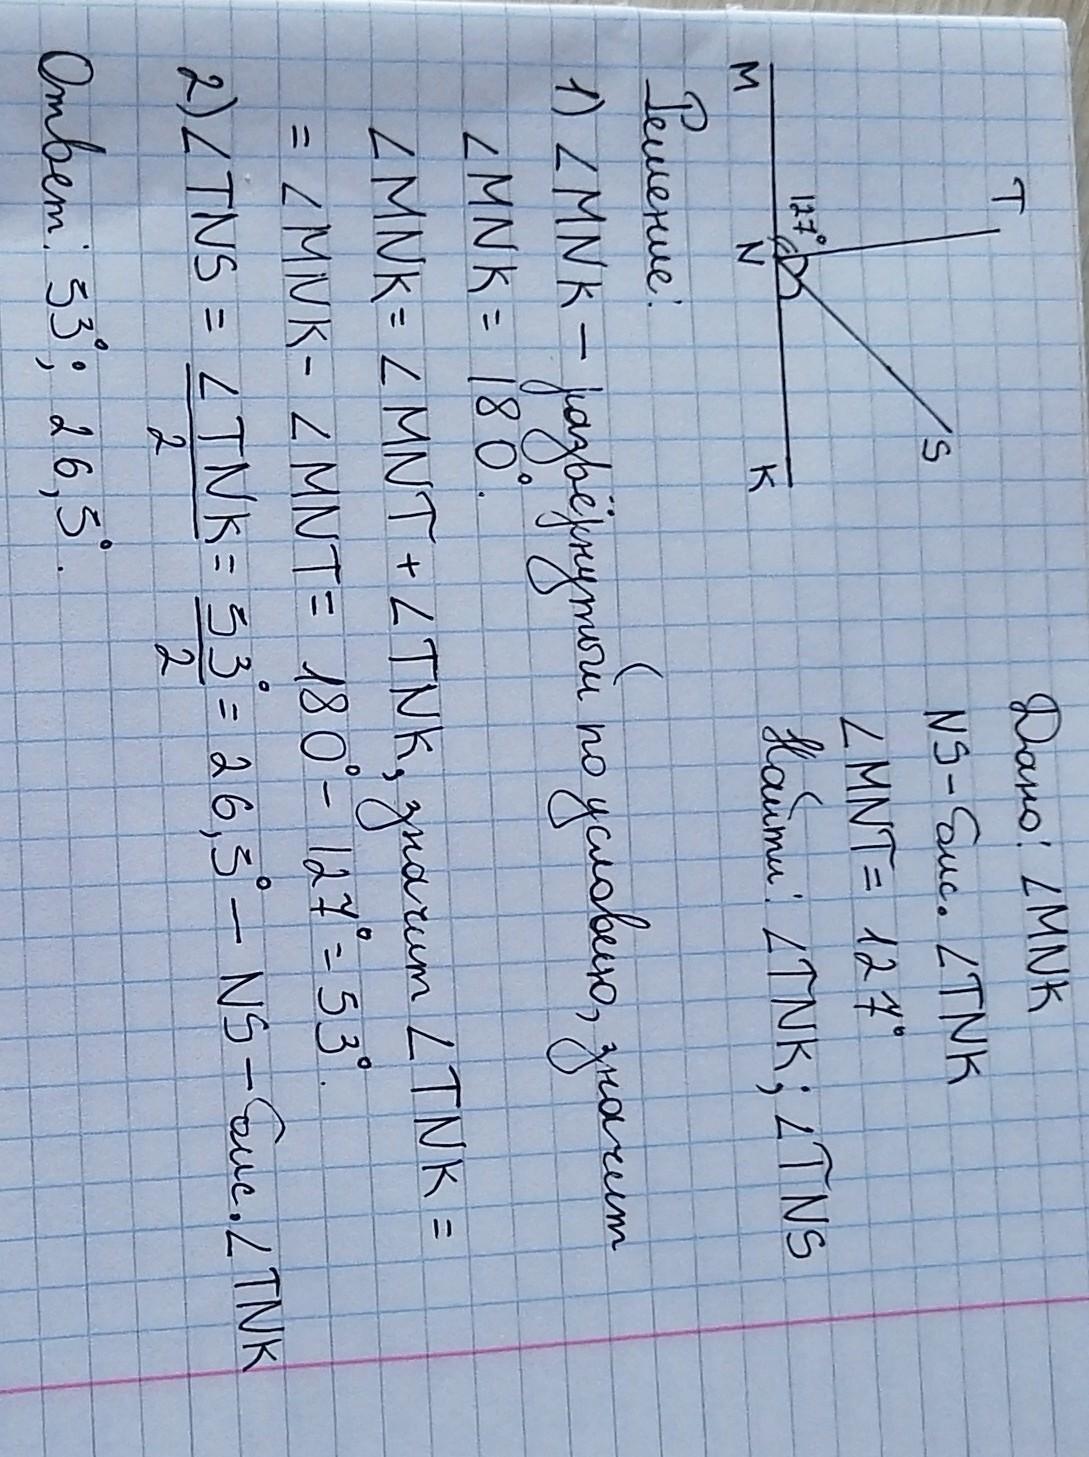 T
127°
S
M
N
K
Дано: ∠MNK
NS - бис. ∠TNK
∠MNT = 127°
Найти: ∠TNK; ∠TNS
Решение:
1) ∠MNK – развёрнутый по условию, значит
∠MNK = 180°.
∠MNK = ∠MNT + ∠TNK, значит ∠TNK =
= ∠MNK - ∠MNT = 180° - 127° = 53°.
2) ∠TNS = ∠TNK/2 = 53°/2 = 26,5° — NS – бис. ∠TNK
Ответ: 53°; 26,5°.